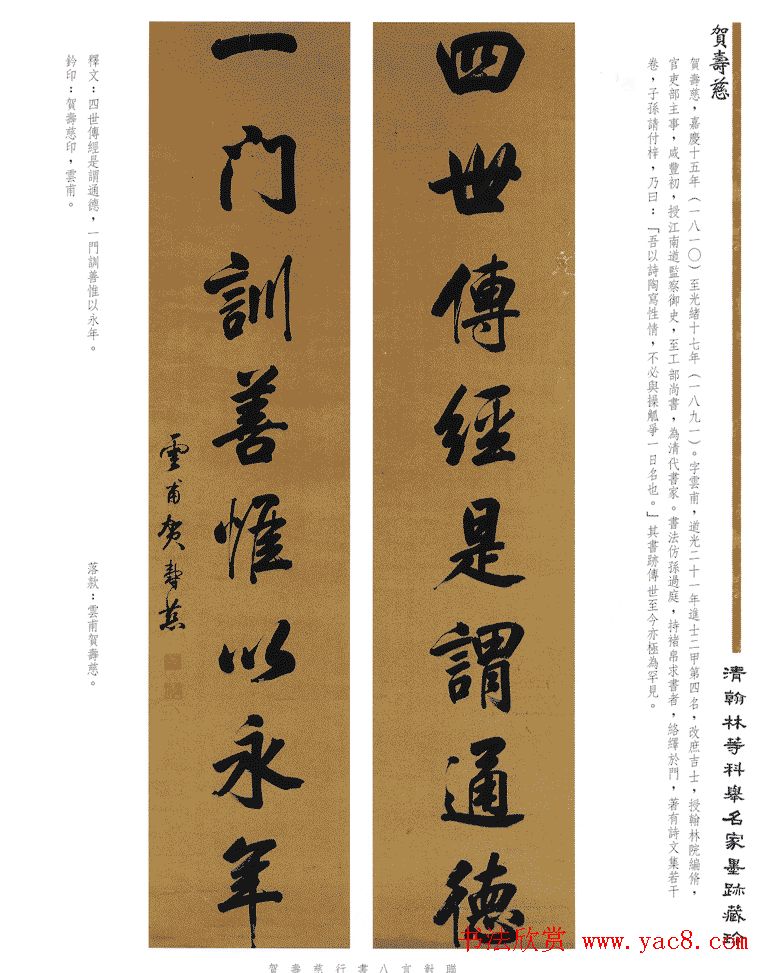 賀壽慈
賀壽慈，嘉慶十五年（一八一〇）至光緒十七年（一八九一）。字雲甫，道光二十一年進士二甲第四名，改庶吉士，授翰林院編脩，
官吏部主事，咸豐初，授江南道監察御史，至工部尚書，為清代書家。書法仿孫過庭，持褚帛求書者，絡繹於門，著有詩文集若干
卷，子孫請付梓，乃曰：「吾以詩陶寫性情，不必與操觚爭一日名也。」其書跡傳世至今亦極為罕見。
清翰林等科舉名家墨跡藏珍
四世傳經是謂通德
一門訓善惟以永年
雲甫賀壽慈
釋文：四世傳經是謂通德，一門訓善惟以永年。
落款：雲甫賀壽慈。
鈐印：賀壽慈印，雲甫。
賀壽慈行書八言對聯
书法欣赏 www.yac8.com